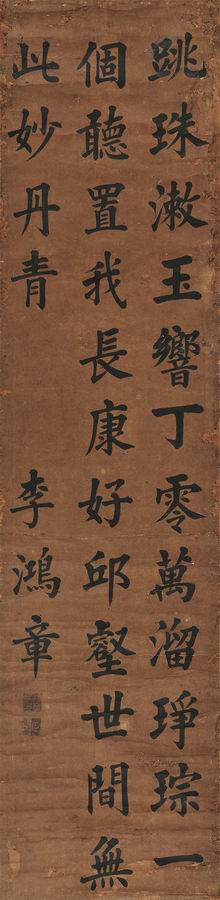 跳珠漱玉響丁零萬溜琤琮一
個聽置我長康好邱壑世間無
此妙丹青
李鴻章